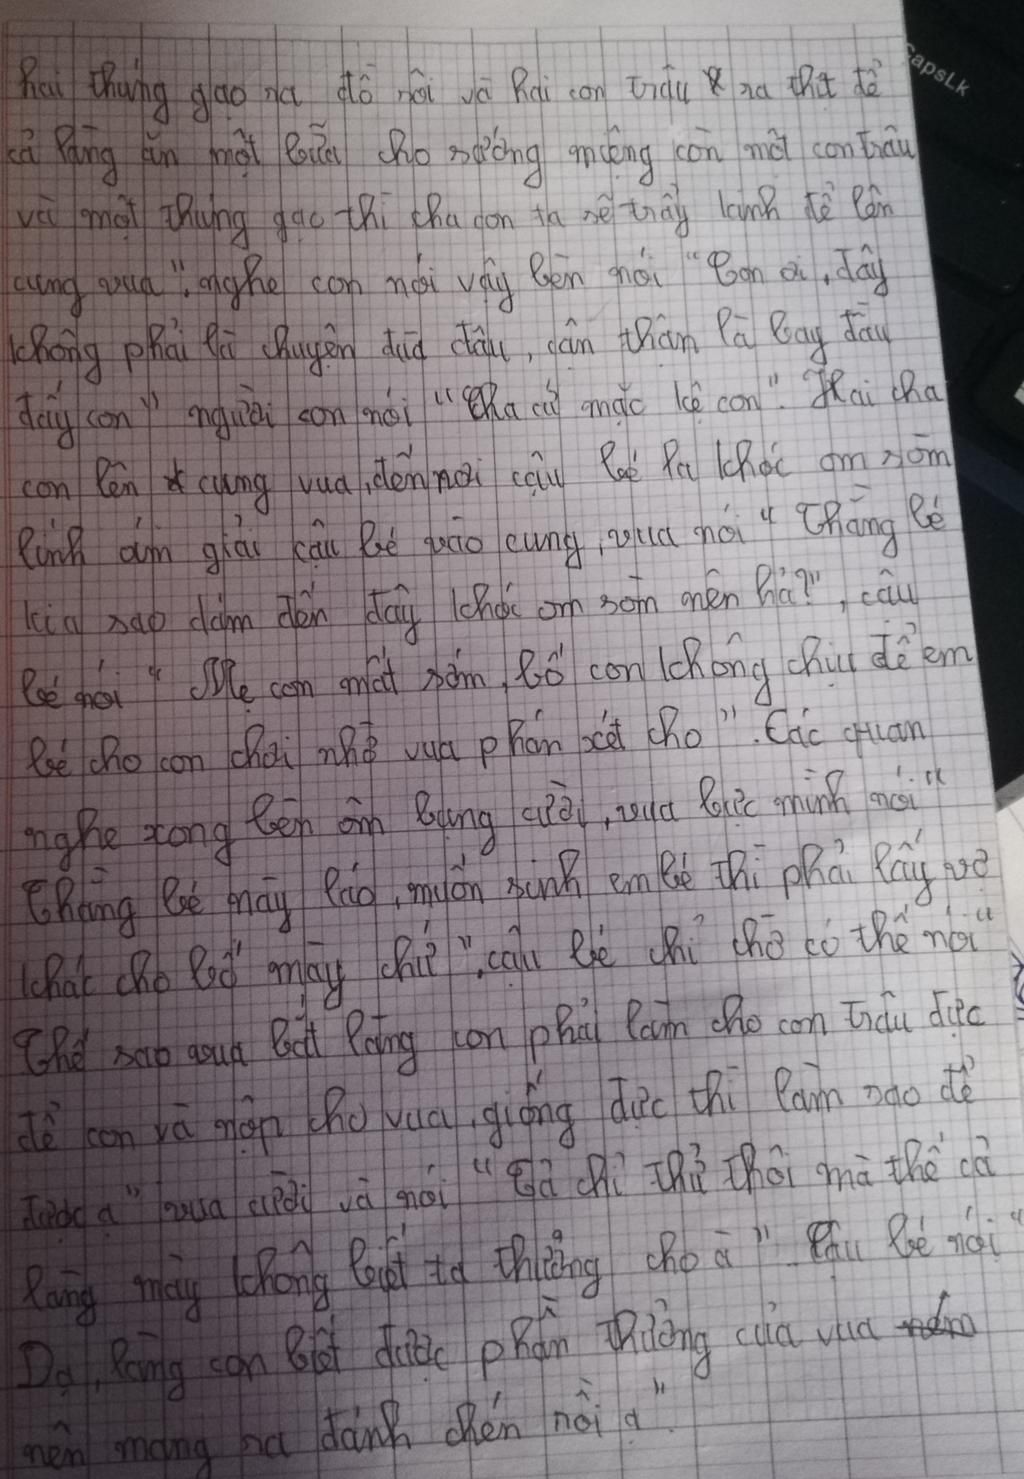 CapsLk
hai thúng gạo ra đồ xôi và hai con trâu ra thịt để
cả làng ăn một bữa cho sướng miệng còn một con trâu
và một thúng gạo thì cha con ta sẽ trẩy kinh để lên
cung vua". nghe con nói vậy bèn nói "Con ơi, đây
không phải là chuyện đùa đâu, cẩn thận là bay đầu
đấy con" người con nói "Cha cứ mặc kệ con". Hai cha
con lên cung vua, đến nơi cậu bé la khóc om sòm
lính áp giải cậu bé vào cung, vua nói "Thằng bé
kia sao dám đến đây khóc om sòm nên hả?", cậu
bé nói "Mẹ con mất sớm, bố con không chịu đẻ em
bé cho con chơi nhờ vua phán xét cho". Các quan
nghe xong bèn ôm bụng cười, vua bực mình nói "
Thằng bé mày láo, muốn sinh em bé thì phải lấy vợ
khác cho bố mày chứ". cậu bé chỉ chờ có thế nói "
Thế sao vua bắt làng con phải làm cho con trâu đực
đẻ con và nộp cho vua, giống đực thì làm sao đẻ
được ạ" vua cười và nói "Ta chỉ thử thôi mà thế cả
làng mày không biết ta thưởng cho à" Cậu bé nói "
Dạ, làng con biết được phần thưởng của vua
nên mang ra đánh chén rồi ạ"